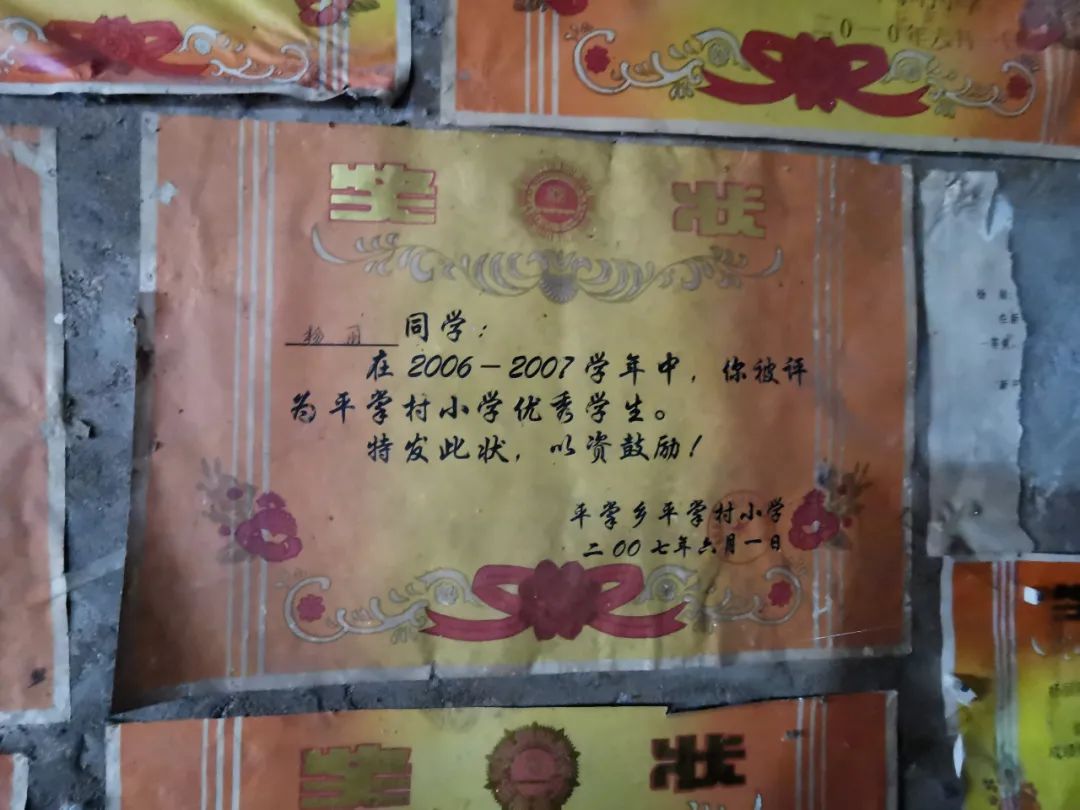 二0一0年六月
奖 状
杨 同学：
在2006－2007学年中，你被评
为平掌村小学优秀学生。
特发此状，以资鼓励！
平掌乡平掌村小学
二00七年六月一日
奖 状